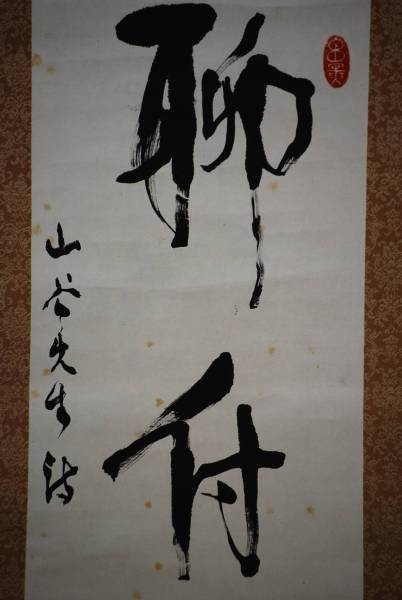 聊付
山谷先生詩